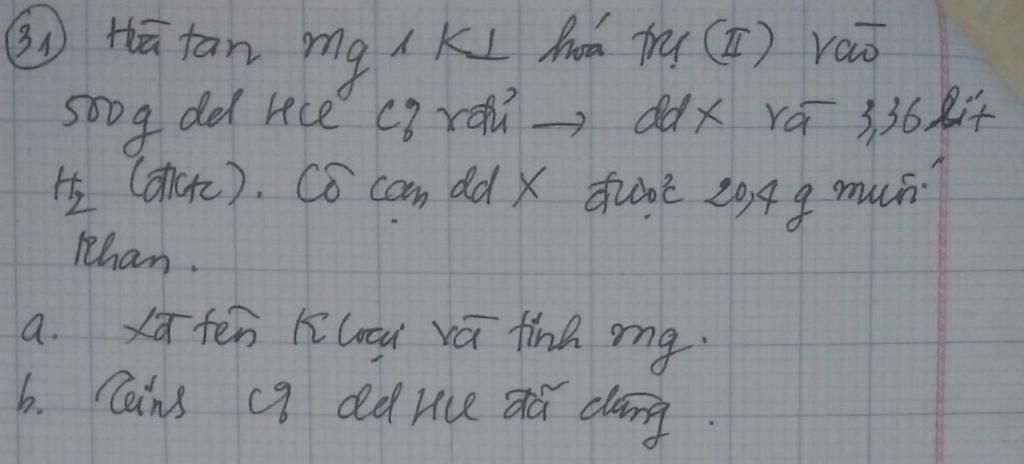 31 Hoà tan mg 1 KL hoá trị (II) vào
500g dd HCl C% vđủ → dd X và 3,36 lít
H2 (đktc). Cô cạn dd X được 20,4 g muối
khan.
a. Xđ tên K loại và tính mg.
b. Tính C% dd HCl đã dùng.